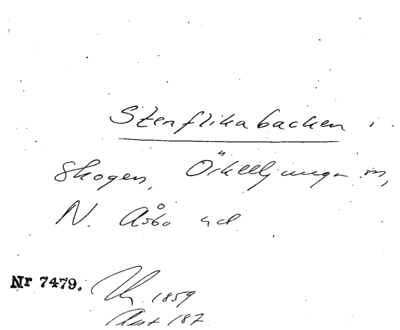 Stenflikabacken i
skogen, Örkelljunga sn,
N. Åsbo hd
Nr 7479.
1859
187